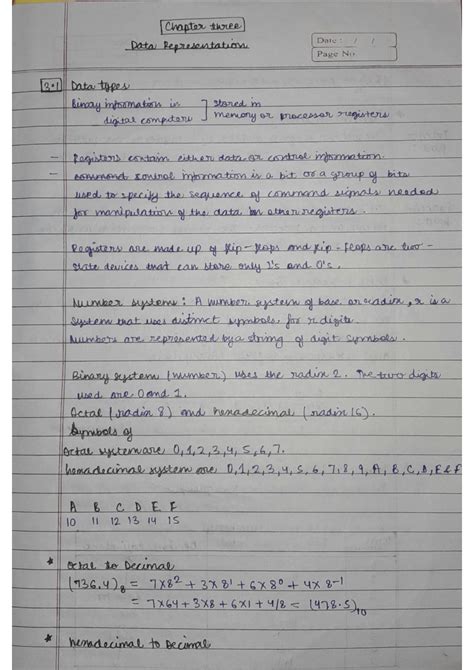 Chapter three
Data Representation
Date: / /
Page No.
3.1 Data types
Binary information in ] stored in
digital computers ] memory or processor registers
- Registers contain either data or control information.
- command control information is a bit or a group of bits
used to specify the sequence of command signals needed
for manipulation of the data in other registers.
Registers are made up of flip-flops and flip-flops are two-
state devices that can store only 1's and 0's.
Number systems: A number system of base or radix, r is a
system that uses distinct symbols for r digits.
Numbers are represented by a string of digit symbols.
Binary system (number) uses the radix 2. The two digits
used are 0 and 1.
Octal (radix 8) and hexadecimal (radix 16).
Symbols of
Octal system are 0,1,2,3,4,5,6,7.
hexadecimal system are 0,1,2,3,4,5,6,7,8,9,A,B,C,D,E & F
A B C D E F
10 11 12 13 14 15
* Octal to Decimal
(736.4)8 = 7×8² + 3×8¹ + 6×8⁰ + 4×8⁻¹
= 7×64 + 3×8 + 6×1 + 4/8 = (478.5)10
* hexadecimal to Decimal